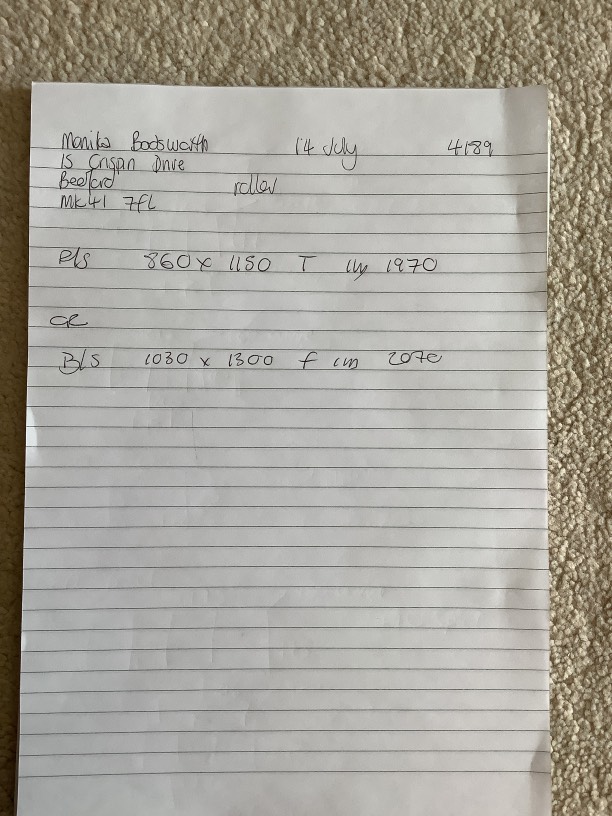 Monika Bodsworth 14 July 4189
15 Crispin Drive
Bedford roller
MK41 7fL
P/s 860 x 1150 T 1970
OR
B/s 1030 x 1300 f 2070